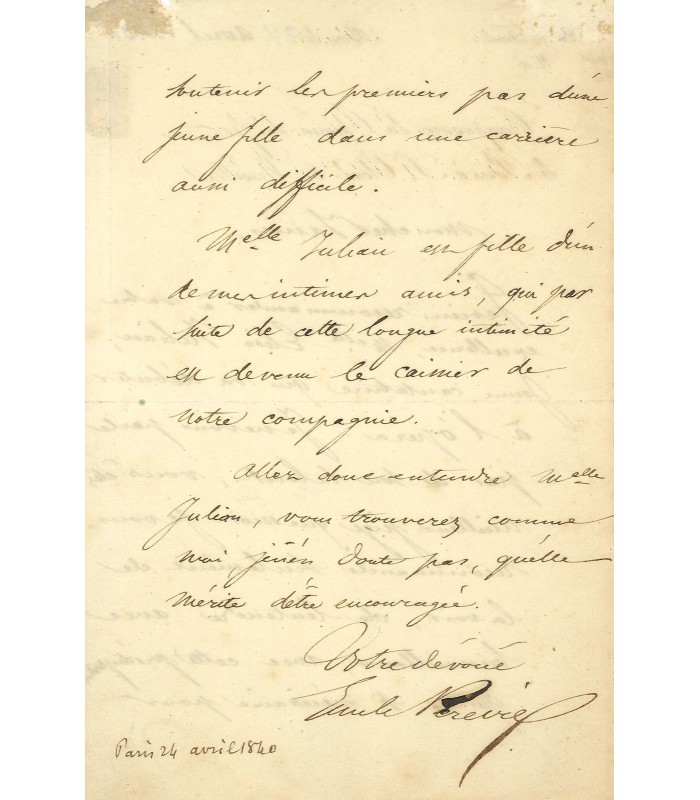 soutenir les premiers pas d'une
jeune fille dans une carrière
aussi difficile.
Melle Julian est fille d'un
de mes intimes amis, qui par
suite de cette longue intimité
est devenu le caissier de
notre compagnie.
Allez donc entendre Melle
Julian, vous trouverez comme
moi, je n'en doute pas, qu'elle
mérite d'être encouragée.
Votre dévoué
Emile Pereire
Paris 24 avril 1840